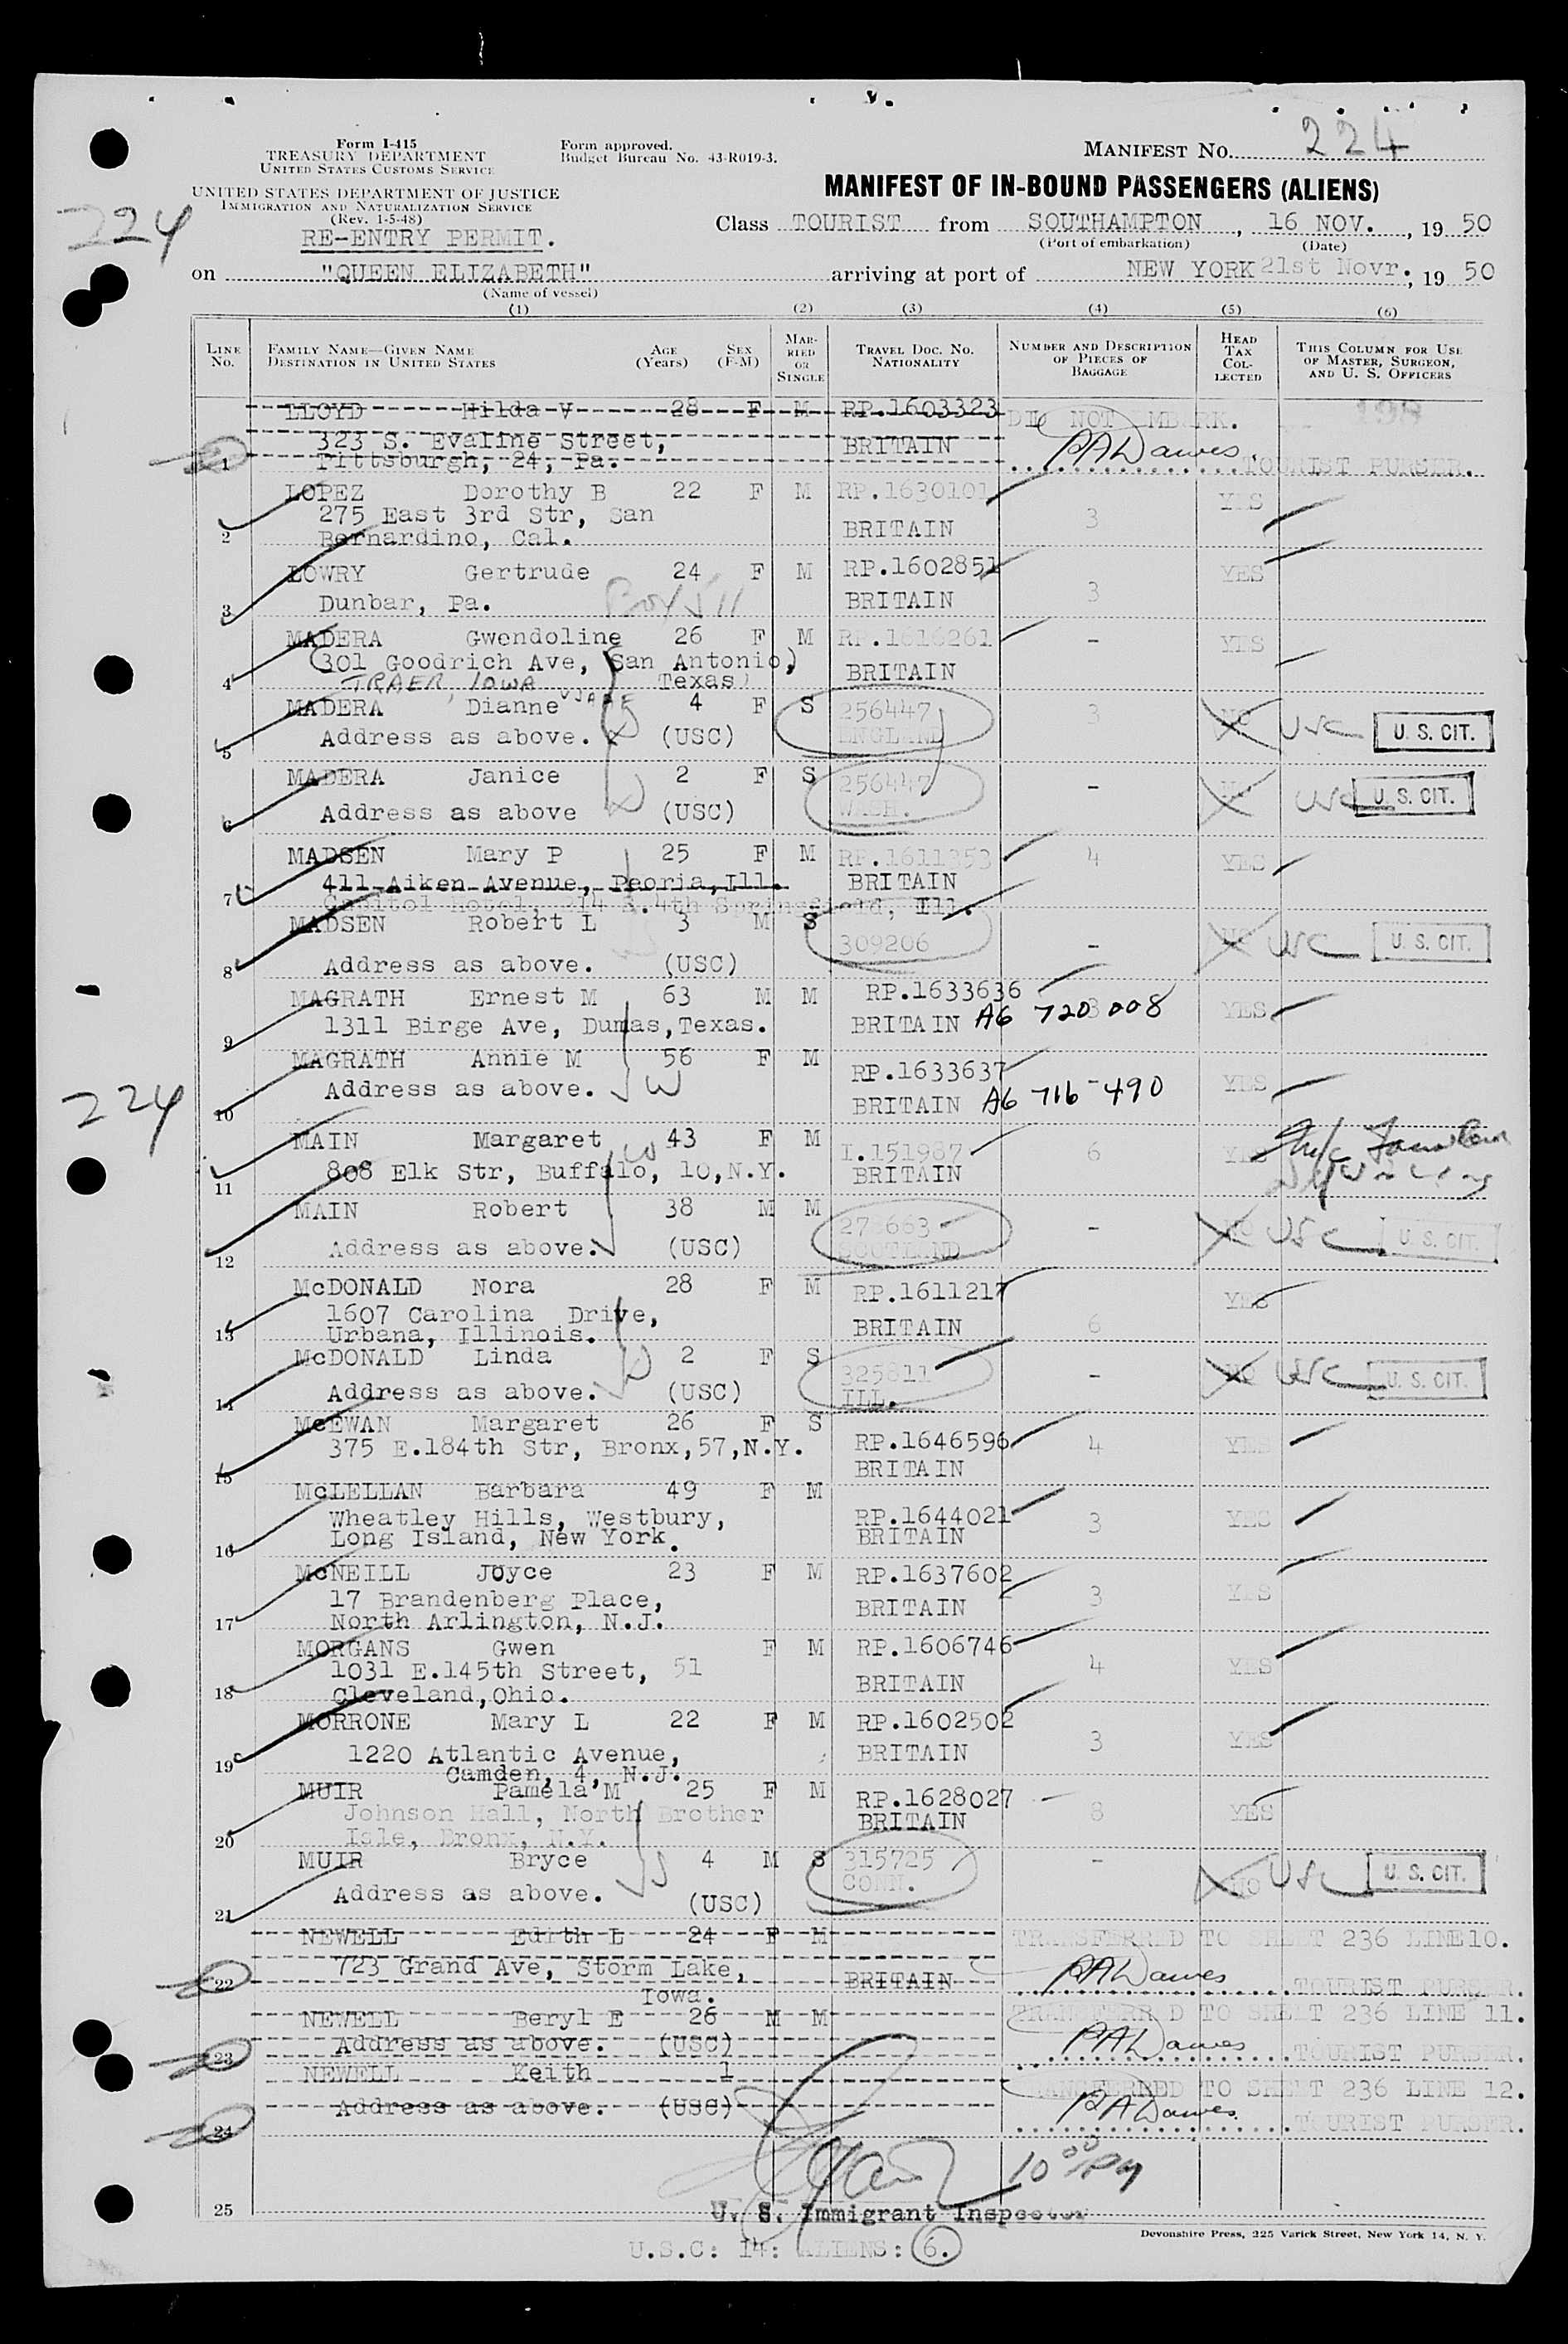 224
Form I-415
TREASURY DEPARTMENT
UNITED STATES CUSTOMS SERVICE
Form approved.
Budget Bureau No. 43-R019-3.
MANIFEST NO. 224
UNITED STATES DEPARTMENT OF JUSTICE
IMMIGRATION AND NATURALIZATION SERVICE
(Rev. 1-5-48)
RE-ENTRY PERMIT.
MANIFEST OF IN-BOUND PASSENGERS (ALIENS)
Class TOURIST from SOUTHAMPTON, 16 NOV., 19 50
(Port of embarkation) (Date)
on "QUEEN ELIZABETH" arriving at port of NEW YORK 21st Novr., 19 50
(Name of vessel)
(1) (2) (3) (4) (5) (6)
LINE No. FAMILY NAME—GIVEN NAME DESTINATION IN UNITED STATES AGE (Years) SEX (F-M) MARRIED OR SINGLE TRAVEL DOC. NO. NATIONALITY NUMBER AND DESCRIPTION OF PIECES OF BAGGAGE HEAD TAX COLLECTED THIS COLUMN FOR USE OF MASTER, SURGEON, AND U. S. OFFICERS
LLOYD Hilda V 28 F M RP.1603323 DID NOT EMBARK. 198
323 S. Evaline Street, BRITAIN PADawes
1 Pittsburgh, 24, Pa. TOURIST PURSER.
LOPEZ Dorothy B 22 F M RP.1630101 YES
275 East 3rd Str, San 3
2 Bernardino, Cal. BRITAIN
LOWRY Gertrude 24 F M RP.1602851 YES
3 Dunbar, Pa. Box 511 BRITAIN 3
MADERA Gwendoline 26 F M RP.1616261 - YES
(301 Goodrich Ave, San Antonio, BRITAIN
4 TRAER, IOWA Texas)
MADERA Dianne JANE 4 F S 256447 3 NO USC U. S. CIT.
5 Address as above. (USC) ENGLAND
MADERA Janice 2 F S 256447 - USC U. S. CIT.
6 Address as above (USC) WASH.
MADSEN Mary P 25 F M RP.1611353 4 YES
7 411 Aiken Avenue, Peoria, Ill. BRITAIN
Capitol Hotel, 214 E. 4th Springfield, Ill.
MADSEN Robert L 3 M S 309206 - NO USC U. S. CIT.
8 Address as above. (USC)
MAGRATH Ernest M 63 M M RP.1633636 3 YES
9 1311 Birge Ave, Dumas, Texas. BRITAIN A6 720 008
MAGRATH Annie M 56 F M RP.1633637 - YES
10 Address as above. W BRITAIN A6 716 490
224
MAIN Margaret 43 F M I.151987 6 YES
11 808 Elk Str, Buffalo, 10, N.Y. BRITAIN
MAIN Robert 38 M M 278663 - NO USC U. S. CIT.
12 Address as above. (USC) SCOTLAND
McDONALD Nora 28 F M RP.1611217 YES
1607 Carolina Drive,
13 Urbana, Illinois. BRITAIN 6
McDONALD Linda 2 F S 325811 - NO USC U. S. CIT.
14 Address as above. (USC) ILL.
McEWAN Margaret 26 F S RP.1646596 4 YES
15 375 E.184th Str, Bronx, 57, N.Y. BRITAIN
McLELLAN Barbara 49 F M RP.1644021 3 YES
Wheatley Hills, Westbury, BRITAIN
16 Long Island, New York.
McNEILL Joyce 23 F M RP.1637602 3 YES
17 Brandenberg Place, BRITAIN
17 North Arlington, N.J.
MORGANS Gwen F M RP.1606746 4 YES
1031 E.145th Street, 51 BRITAIN
18 Cleveland, Ohio.
MORRONE Mary L 22 F M RP.1602502 3 YES
19 1220 Atlantic Avenue, BRITAIN
Camden, 4, N.J.
MUIR Pamela M 25 F M RP.1628027 8 YES
Johnson Hall, North Brother BRITAIN
20 Isle, Bronx, N.Y.
MUIR Bryce 4 M S 315725 - NO USC U. S. CIT.
Address as above. CONN.
21 (USC)
NEWELL Edith L 24 F M TRANSFERRED TO SHEET 236 LINE 10.
22 723 Grand Ave, Storm Lake, BRITAIN PADawes TOURIST PURSER.
Iowa.
NEWELL Beryl E 26 M M TRANSFERRED TO SHEET 236 LINE 11.
23 Address as above. (USC) PADawes TOURIST PURSER.
NEWELL Keith 1 TRANSFERRED TO SHEET 236 LINE 12.
24 Address as above. (USC) PADawes TOURIST PURSER.
10 00 PM
25 U. S. Immigrant Inspector
Devonshire Press, 225 Varick Street, New York 14, N. Y.
U.S.C: 14: ALIENS: 6.